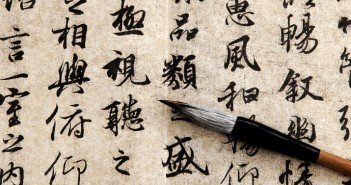 暢叙幽情
惠風和暢仰
品類之盛
極視聽之
相與俯仰
言一室之内